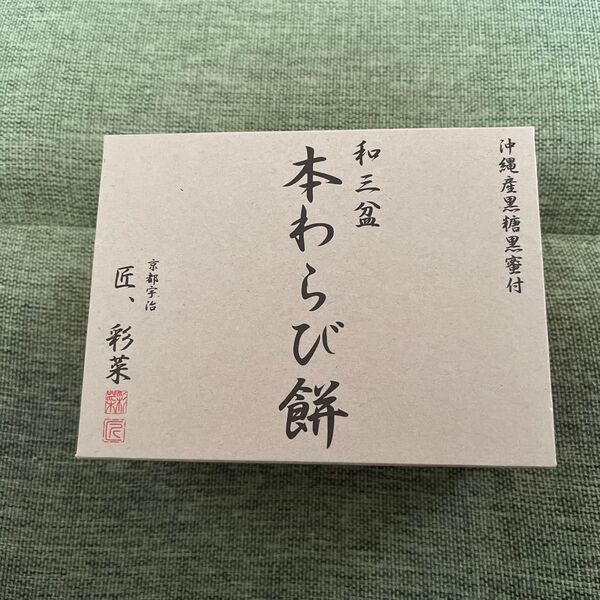 沖縄産黒糖黒蜜付
和三盆
本わらび餅
京都宇治
匠、彩菜
彩菜
匠